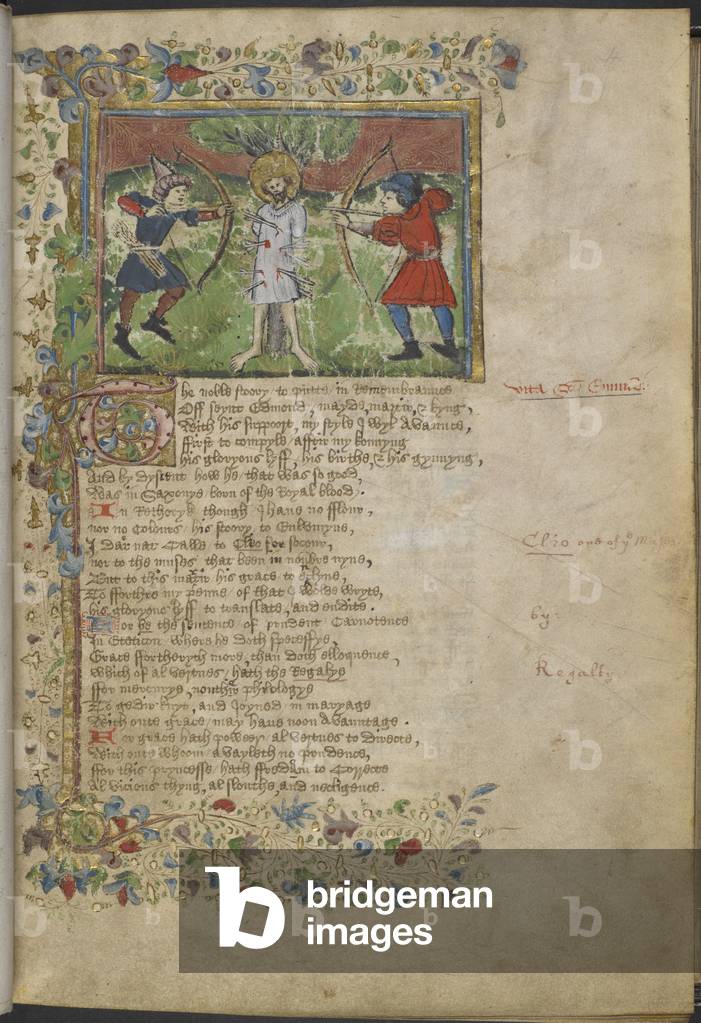 The noble stoory to putte in remembraunce
Off seynt Edmond, mayde, martir, & kyng,
With his support, my style I wyl avaunce,
ffirst to compyle, afftir my konnyng
his gloryous lyff, his birthe, & his gynnyng,
And by dyscent how he, that was so good,
Was in Saxonye born of the royal blood.
In Rethoryk though I have no fflour,
nor no coloures his stoory to enlwmyne,
I dar nat calle to Clio for socour,
nor to the muses that been in noumbre nyne,
But to this martir his grace to enclyne,
To fforthre my penne of that I wolde wryte,
his gloryous lyff to translate and endite.
For be the sentence of prudent Carnotence
In Eteticon where he doth speceffye,
Grace ffortheryth more, than doth elloquence,
Which of al vertues, hath the Regalye
ffor mercurye, nouthir philologye
To gedir knyt, and Joyned in maryage
With oute grace, may have noon avauntage.
For grace hath poweer, al vertues to directe,
With oute whoom avayleth no prudence,
ffor this pryncesse hath ffredam to correcte
Al vicious thyng, al slouthe and necligence.
Vita Sti
Clio one of ye Muses
by
Regalty
b bridgeman
images